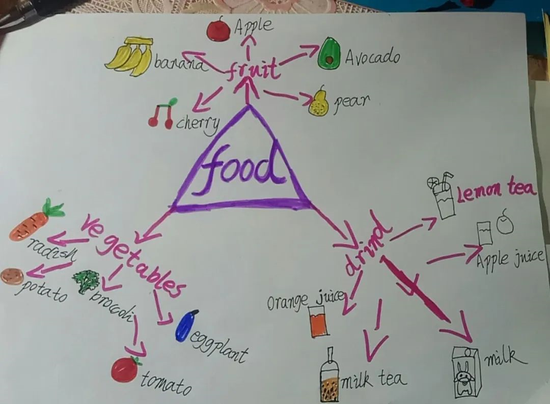 Apple
banana
fruit
Avocado
cherry
pear
food
vegetables
radish
potato
brocoli
eggplant
tomato
drind
Lemon tea
Apple juice
Orange juice
milk tea
milk